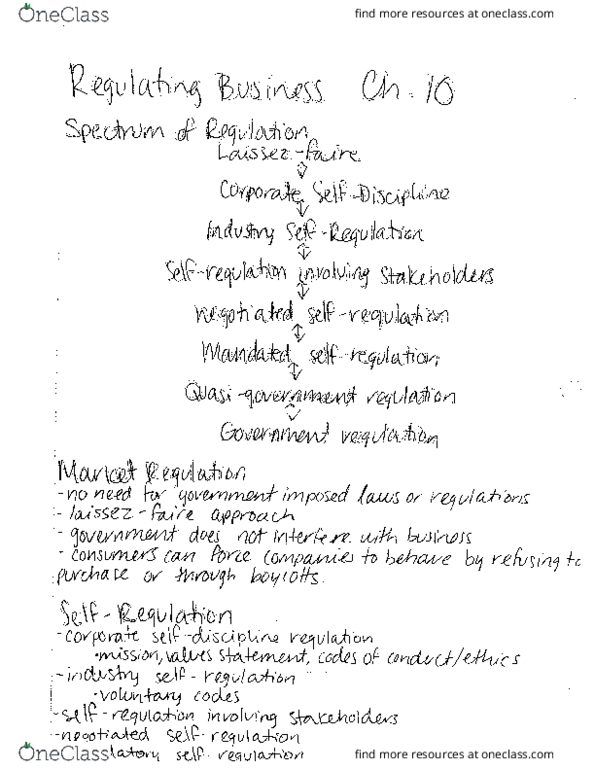 OneClass
find more resources at oneclass.com
Regulating Business Ch. 10
Spectrum of Regulation
Laissez-faire
Corporate Self-Discipline
Industry Self-Regulation
Self-regulation involving stakeholders
Negotiated self-regulation
Mandated self-regulation
Quasi-government regulation
Government regulation
Market Regulation
-no need for government imposed laws or regulations
-laissez-faire approach
-government does not interfere with business
-consumers can force companies to behave by refusing to
purchase or through boycotts.
Self-Regulation
-corporate self-discipline regulation
•mission, values statement, codes of conduct/ethics
-industry self-regulation
•voluntary codes
-self-regulation involving stakeholders
-negotiated self-regulation
latory self regulation
OneClass
find more resources at oneclass.com